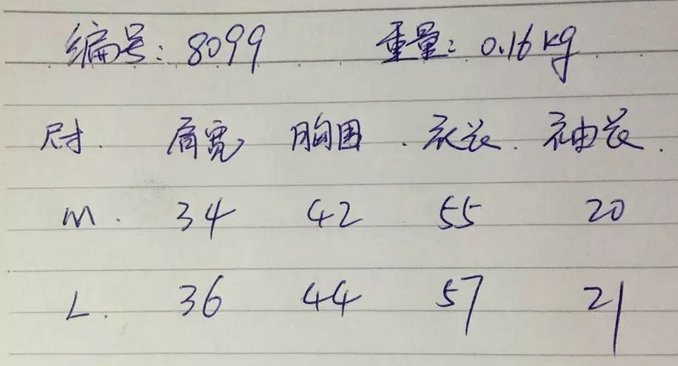 编号: 8099 重量: 0.16kg
尺寸. 肩宽 胸围. 衣长. 袖长.
M. 34 42 55 20
L. 36 44 57 21